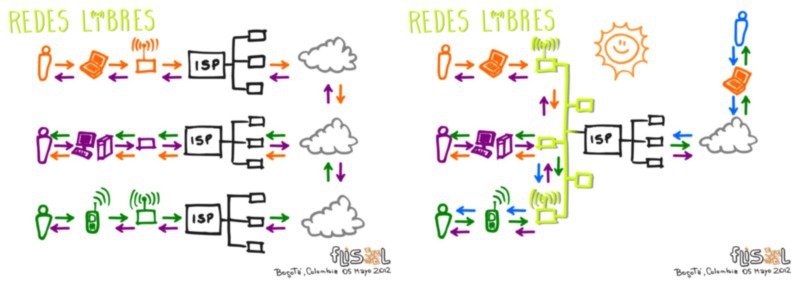 REDES LIBRES
ISP
ISP
ISP
FLISOL
Bogotá, Colombia 05 Mayo 2012
REDES LIBRES
ISP
FLISOL
Bogotá, Colombia 05 Mayo 2012